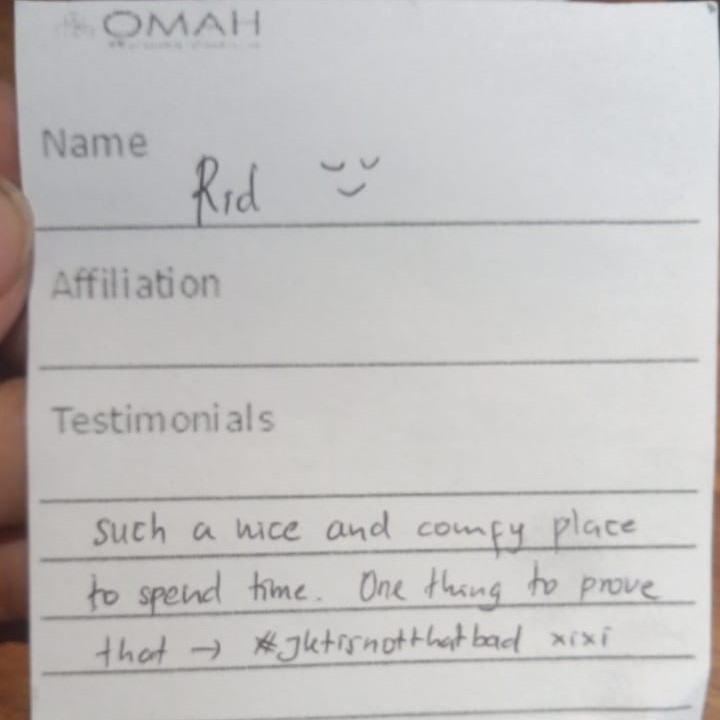 OMAH
Name
Rid
Affiliation
Testimonials
such a nice and comfy place
to spend time. One thing to prove
that → #jktisnotthatbad xixi